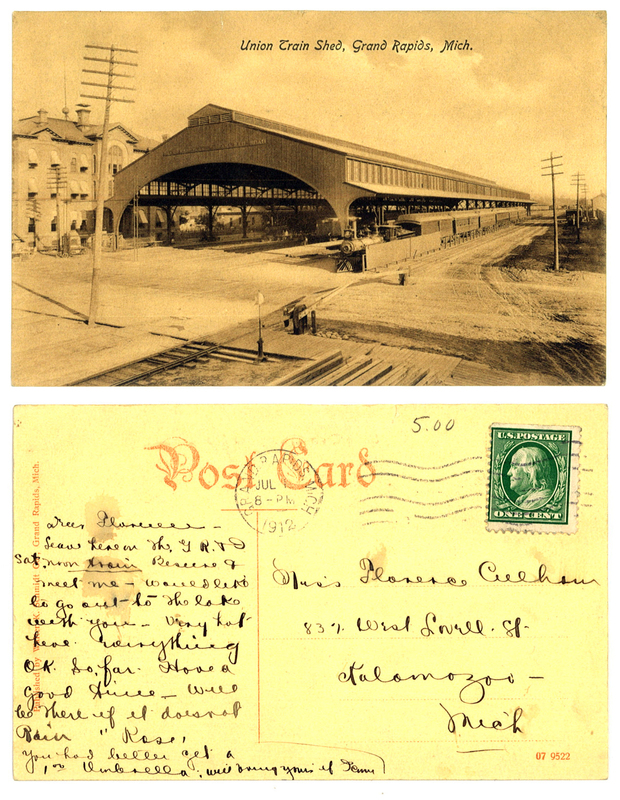 Union Train Shed, Grand Rapids, Mich.
Post Card
5.00
GRAND RAPIDS, MICH.
JUL
8-PM
1912
U.S. POSTAGE
ONE CENT
Published by Grand Rapids, Mich.
Dear Florence -
Leave here on the G R & I
Sat. noon train Be sure &
meet me - would like
to go out to the lake
with you - Very hot
here everything
O.K. So, far. Have a
good time - Will
be there if it does not
Rain "Rose,
You had better get a
Umbrella, will bring yours if
Miss Florence Culham
West Lovell St.
Kalamozoo -
Mich
07 9522